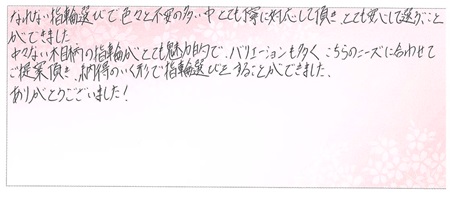 なれない指輪選びで色々と不安の多い中とても丁寧に対応して頂き とても安心して選ぶこと
ができました
少ない木目柄の指輪がとても魅力的で、バリエーションも多く こちらのニーズに合わせて
ご提案頂き、納得のいく形で指輪選びをすることができました。
ありがとうございました!